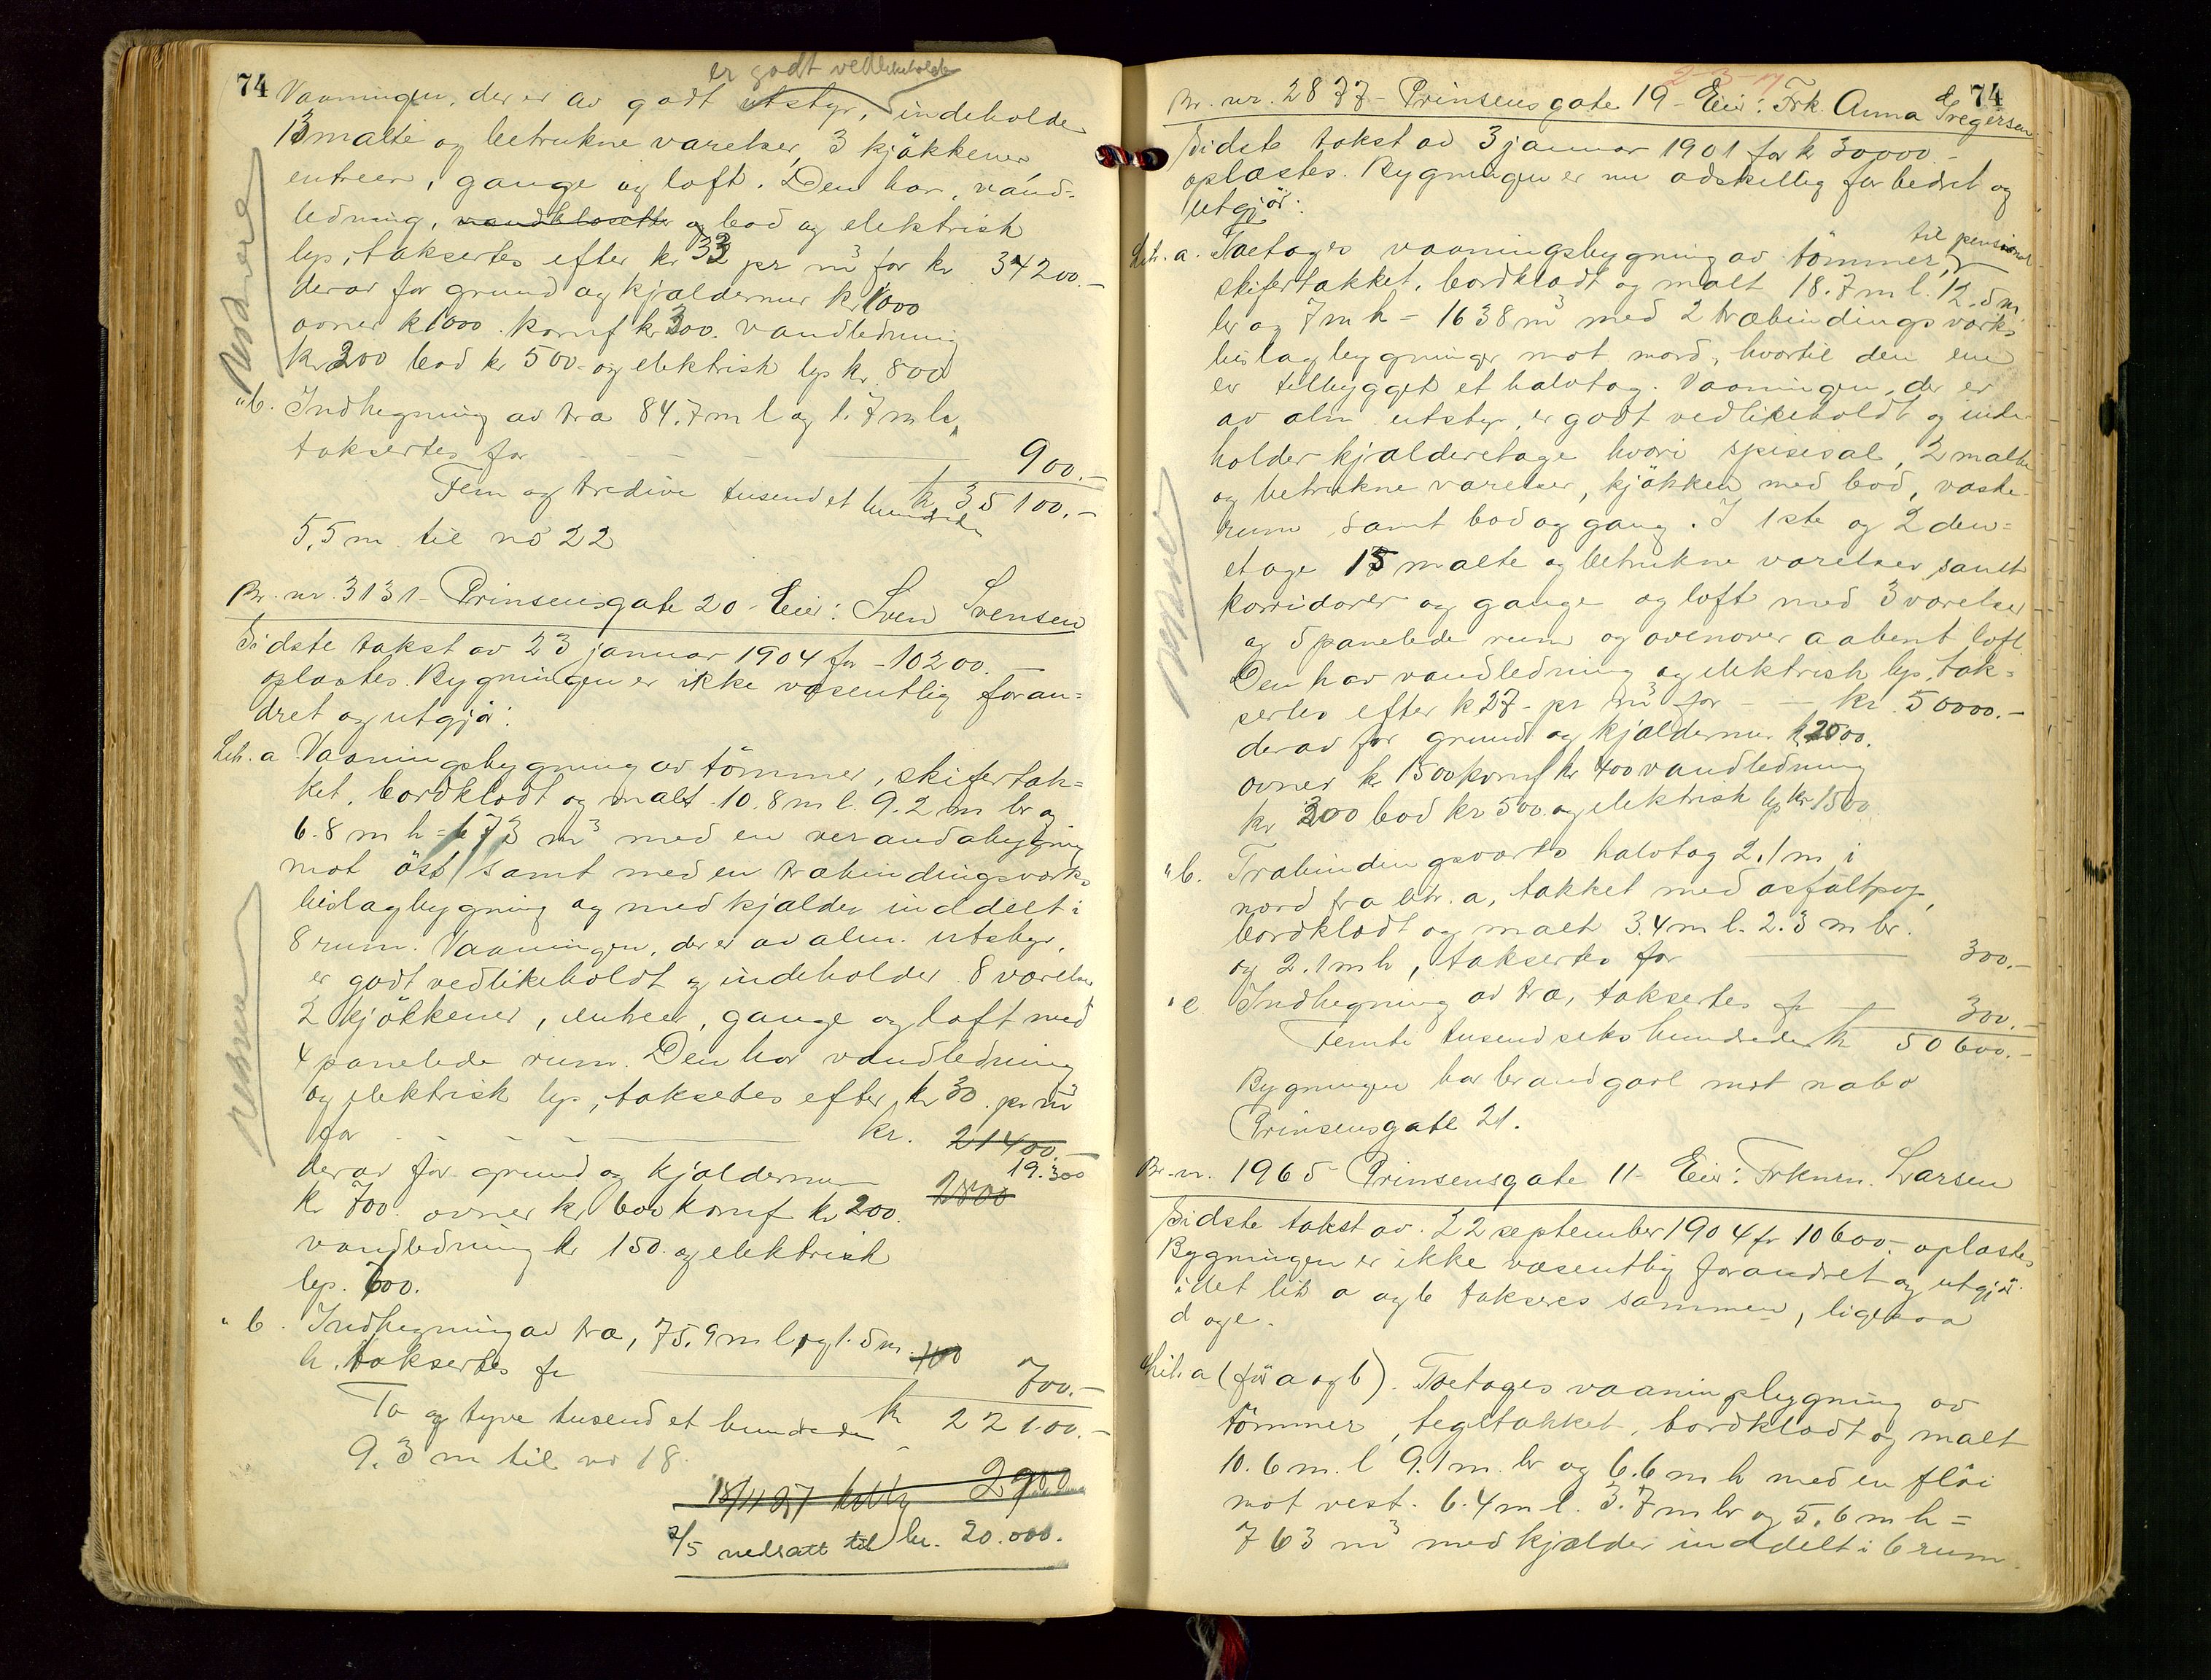 74
er godt vedlikeholdt
Vaaningen, der er av godt utstyr, indeholder
13 malte og betrukne værelser, 3 kjökkener,
entreer, gange og loft. Den har vand=
ledning, vandklosetter og bad og elektrisk
lys, taksertes efter kr 33 pr m³ for kr 34200.-
derav for grund og kjældermur kr 1000
ovner kr 1000. komf kr 300. vandledning
kr 200 bad kr 500- og elektrisk lys kr. 800
"b. Indhegning av træ 84.7 m l og 1.7 m h,
taksertes for 900.-
kr 35100.-
Fem og tredive tusend et hundrede
5.5 m til no 22
Br. nr. 3131- Prinsensgate 20- Eier: Sven Svensen
Sidste takst av 23 januar 1904 for - 10200.-
oplæstes. Bygningen er ikke væsentlig foran=
dret og utgjör:
Litr. a Vaaningsbygning av tömmer, skifertak=
ket, bordklædt og malt 10.8 m l. 9.2 m br og
6.8 m h = 673 m³ med en verandabygning
mot öst samt med en træbindingsværks
bislagbygning og med kjælder inddelt i
8 rum. Vaaningen, der er av alm. utstyr,
er godt vedlikeholdt og indeholder 8 værelser
2 kjökkener, entreer, gange og loft med
4 panelede rum. Den har vandledning
og elektrisk lys, taksertes efter kr 30 pr m³
for kr. 21400.-
19.300
derav for grund og kjældermur 2800
kr 700. ovner kr 600 komf kr 200.
vandledning kr 150. og elektrisk
lys. 600.
" b. Indhegning av træ, 75.9 m l og 1.5 m 700
h. taksertes for 700.-
To og tyve tusend et hundrede kr 22100.-
9.3 m til no 18.
2900
2/5 nedsatt til kr. 20.000.
74
Br. nr. 2877- Prinsensgate 19- Eier: Frk. Anna Gregersen
Sidste takst av 3 januar 1901 for kr 30000.-
oplæstes. Bygningen er nu adskillig forbedret og
utgjör:
Litr. a. Toetages vaaningsbygning av tömmer, til pensionat
skifertækket, bordklædt og malt 18.7 m l. 12.5 m
br og 7 m h = 1638 m³ med 2 træbindingsværks
bislagbygninger mot nord, hvortil den ene
er tilbygget et halvtag. Vaaningen, der er
av alm utstyr, er godt vedlikeholdt og inde-
holder kjælderetage hvori spisesal, 2 malte
og betrukne værelser, kjökken med bod, vaske-
rum samt bod og gang. I 1ste og 2den=
etage 15 malte og betrukne værelser samt
korridorer og gange og loft med 3 værelser
og 5 panelede rum og ovenover aabent loft
Den har vandledning og elektrisk lys, tak=
sertes efter kr 27- pr m³ for - - kr. 50000.-
derav for grund og kjældermur kr 2000.
ovner kr 1500 komf kr 400 vandledning
kr 300 bad kr 500. og elektrisk lys kr 1500
"b. Træbindingsværks halvtag 2.1 m i
nord fra litr. a, tækket med asfaltpap,
bordklædt og malt 3.4 m l. 2.3 m br.
og 2.1 m h, taksertes for 300.-
" c Indhegning av træ, taksertes for 300.-
Femti tusend seks hundrede kr 50600.-
Bygningen har brandgavl mot nabo
Prinsensgate 21.
Br. nr. 1965- Prinsensgate 11- Eier: Frknm. Larsen
Sidste takst av 22 september 1904 for 10600.- oplæstes
Bygningen er ikke væsentlig forandret og utgjör.
idet lit a og b takseres sammen, ligesaa
d og e.
Litr. a (för a og b). Toetages vaaningsbygning av
tömmer, tegltækket, bordklædt og malt
10.6 m. l 9.1 m. br og 6.6 m h med en flöi
mot vest. 6.4 m l. 3.7 m br og 5.6 m h =
763 m³ med kjælder inddelt i 6 rum.